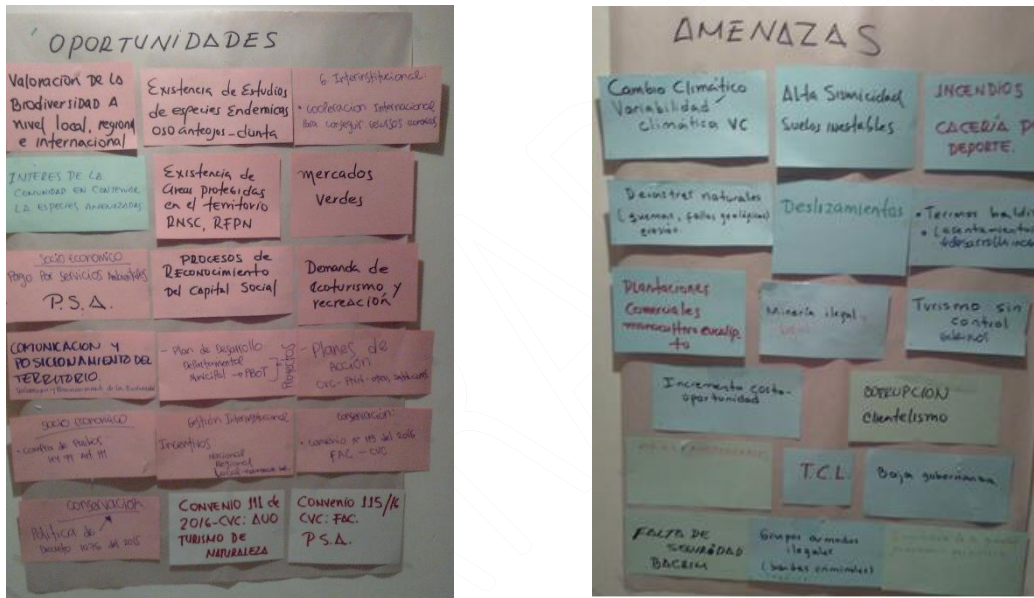 OPORTUNIDADES
Valoración DE la
Biodiversidad A
nivel local, regional
e internacional
Existencia de Estudios
de especies Endemicas
oso anteojos - danta
6. Interinstitucional:
• cooperación Internacional
para conseguir recursos
INTERES DE LA
COMUNIDAD EN
LA ESPECIES AMENAZADAS
Existencia de
áreas protegidas
en el territorio
RNSC, RFPN
mercados
verdes
Socio economico
Pago Por Servicios Ambientales
P.S.A.
PROCESOS DE
RECONOCIMIENTO
Del Capital Social
Demanda de
ecoturismo y
recreación
COMUNICACION Y
POSICIONAMIENTO DEL
TERRITORIO.
- Plan de Desarrollo
Departamental
Municipal → PBOT
Proyectos
- Planes de
Acción
CVC-
socio economico
• compra de Predios
Ley 99 Art 111
Gestión Interinstitucional
Incentivos
Nacional
Regional
Local
conservación:
• convenio nº 115 del 2016
FAC - CVC
conservación
Política de
Decreto del 2015
CONVENIO 111 de
2016-CVC: AUO
TURISMO DE
NATURALEZA
CONVENIO 115/16
CVC: FAC.
P.S.A.
AMENAZAS
Cambio Climático
Variabilidad
climática VC
Alta Sismicidad
Suelos inestables
INCENDIOS
CACERÍA DE
DEPORTE.
Desastres naturales
(quemas, fallas geológicas)
erosión.
Deslizamientos
• Terrenos
Plantaciones
Comerciales
monocultivo eucalip
to
Minería ilegal.
Turismo sin
control
Incremento costo-
oportunidad
CORRUPCION
Clientelismo
T.C.L.
Baja gobernanza
FALTA DE
SEGURIDAD
BACRIM
Grupos armados
ilegales
(bandas criminales)